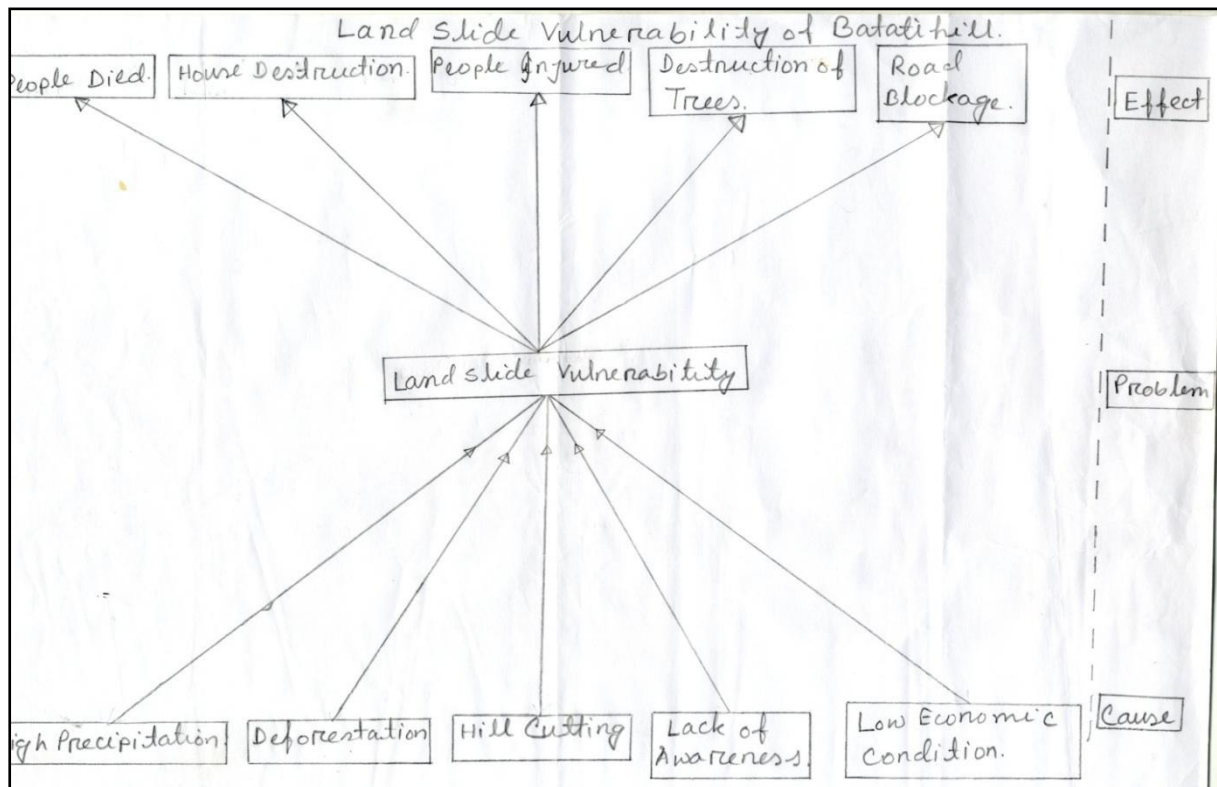 Land Slide Vulnerability of Batati hill.
People Died.
House Destruction.
People Injured
Destruction of
Trees.
Road
Blockage.
Effect
Land slide Vulnerabitity
Problem
igh Precipitation.
Deforestation
Hill Cutting
Lack of
Awareness.
Low Economic
Condition.
Cause